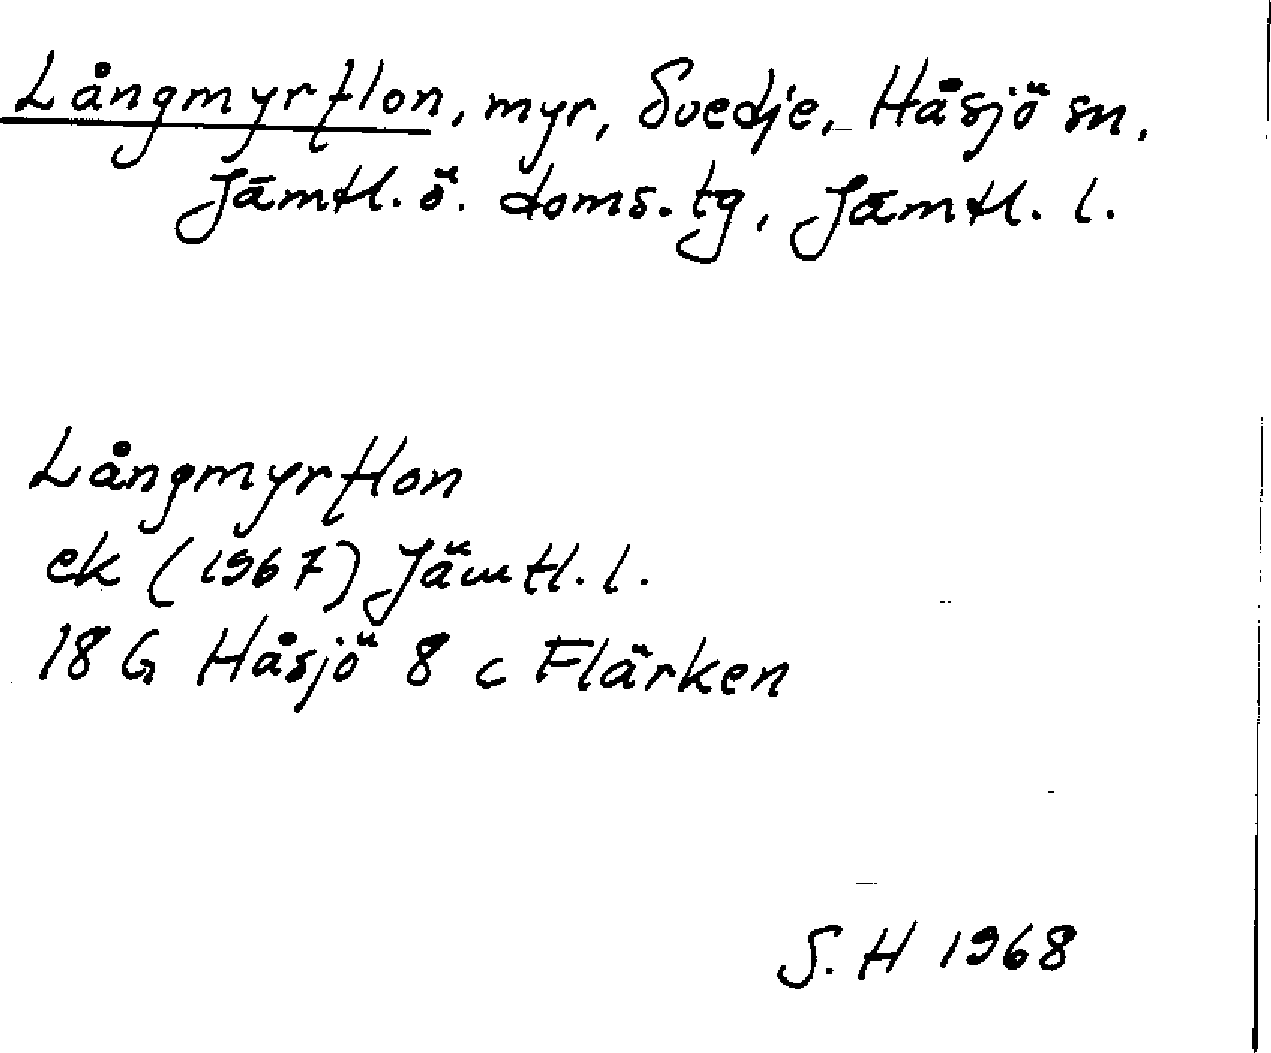 Långmyrflon, myr, Svedje, Håsjö sn,
Jämtl. ö. doms. tg, Jämtl. l.
Långmyrflon
ek (1967) Jämtl. l.
18 G Håsjö 8 c Flärken
S. H 1968